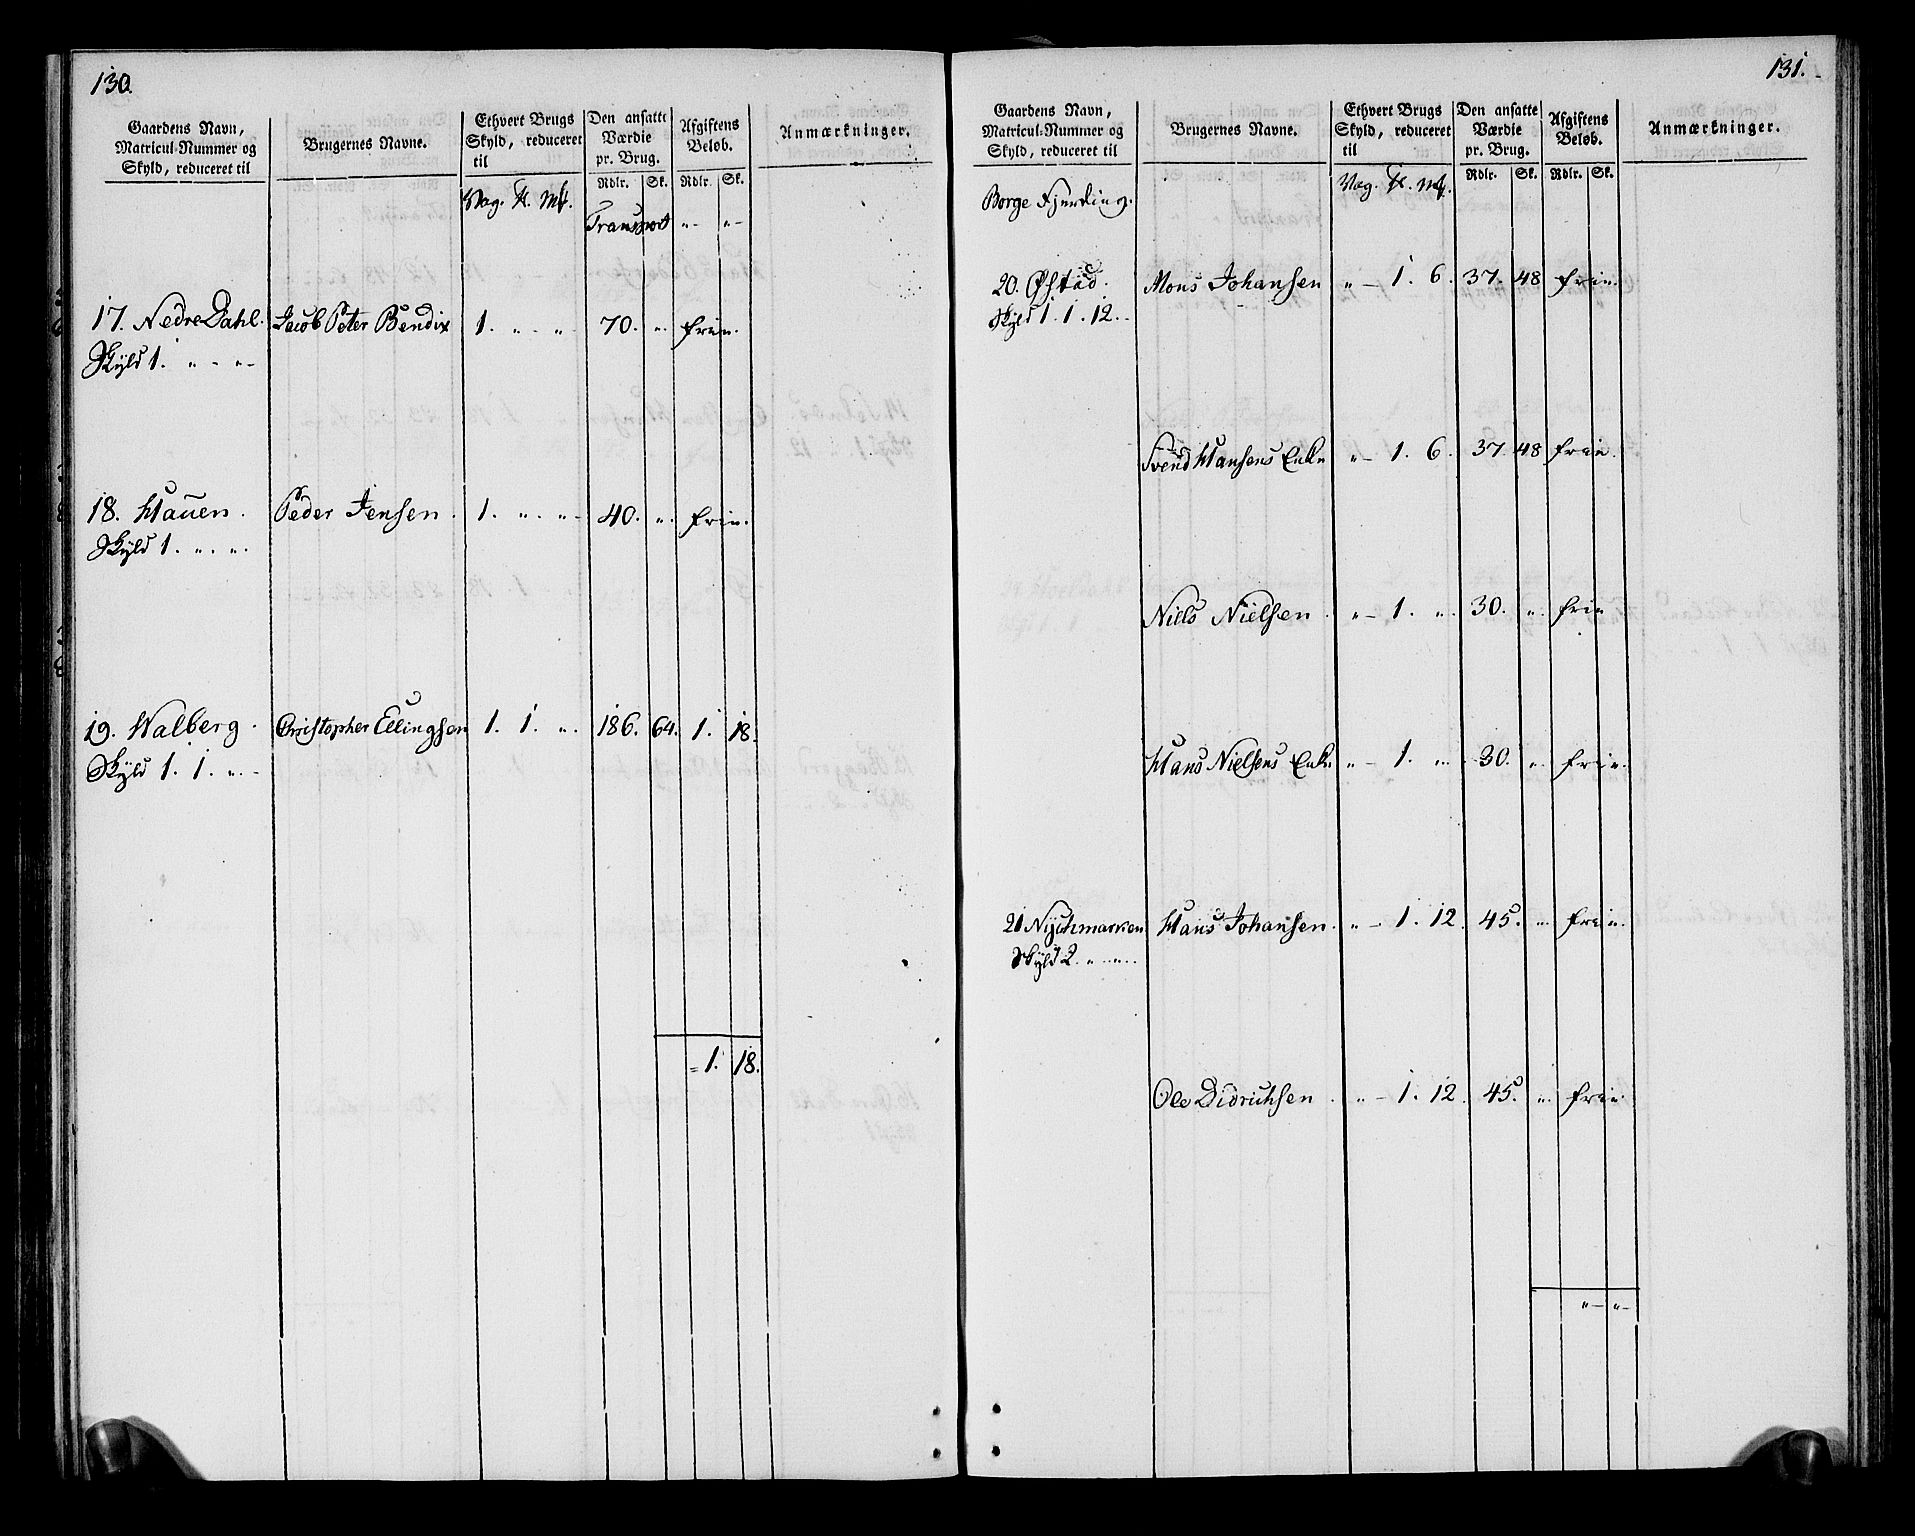 130.
Gaardens Navn, Matricul-Nummer og Skyld, reduceret til
Brugernes Navne.
Ethvert Brugs Skyld, reduceret til
Den ansatte Værdie pr. Brug.
Afgiftens Beløb.
Anmærkninger.
Rdlr. Sk. Rdlr. Sk.
Vog. ℔. Mk.
Transport „- „-
17. Nedre Dahl. Jacob Peter Bendix 1. „. „. 70. „. frie.
Skyld 1. „ - „-
18. Hauen. Peder Jensen. 1. „. „- 40. „. frie.
Skyld 1. „. „.
19. Walberg. Christopher Ellingsen 1. 1. „. 186. 64. 1. 18.
Skyld 1. 1. „.-
= 1. 18.
131.
Gaardens Navn, Matricul-Nummer og Skyld, reduceret til
Brugernes Navne.
Ethvert Brugs Skyld, reduceret til
Den ansatte Værdie pr. Brug.
Afgiftens Beløb.
Anmærkninger.
Rdlr. Sk. Rdlr. Sk.
Vog. ℔. Mk.
Borge Fjerding.
20. Øfstad. Mons Johansen „- 1. 6. 37. 48 frie.
Skyld 1. 1. 12.
Svend Hansens Enke „- 1. 6. 37. 48 frie.
Niels Nielsen. „- 1. „. 30. „. frie
Hans Nielsens Enke „- 1. „. 30. „. frie.
21 Nyschmarken Hans Johansen. „- 1. 12. 45. „. frie.
Skyld 2. „. „.
Ole Didrichsen. „- 1. 12. 45. „. frie.
„- „-